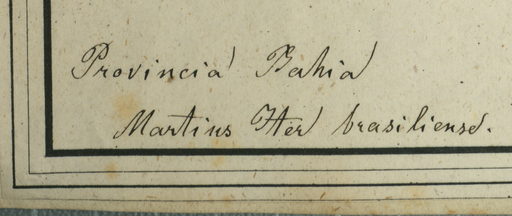 Provincia Bahia
Martius Iter brasiliense.